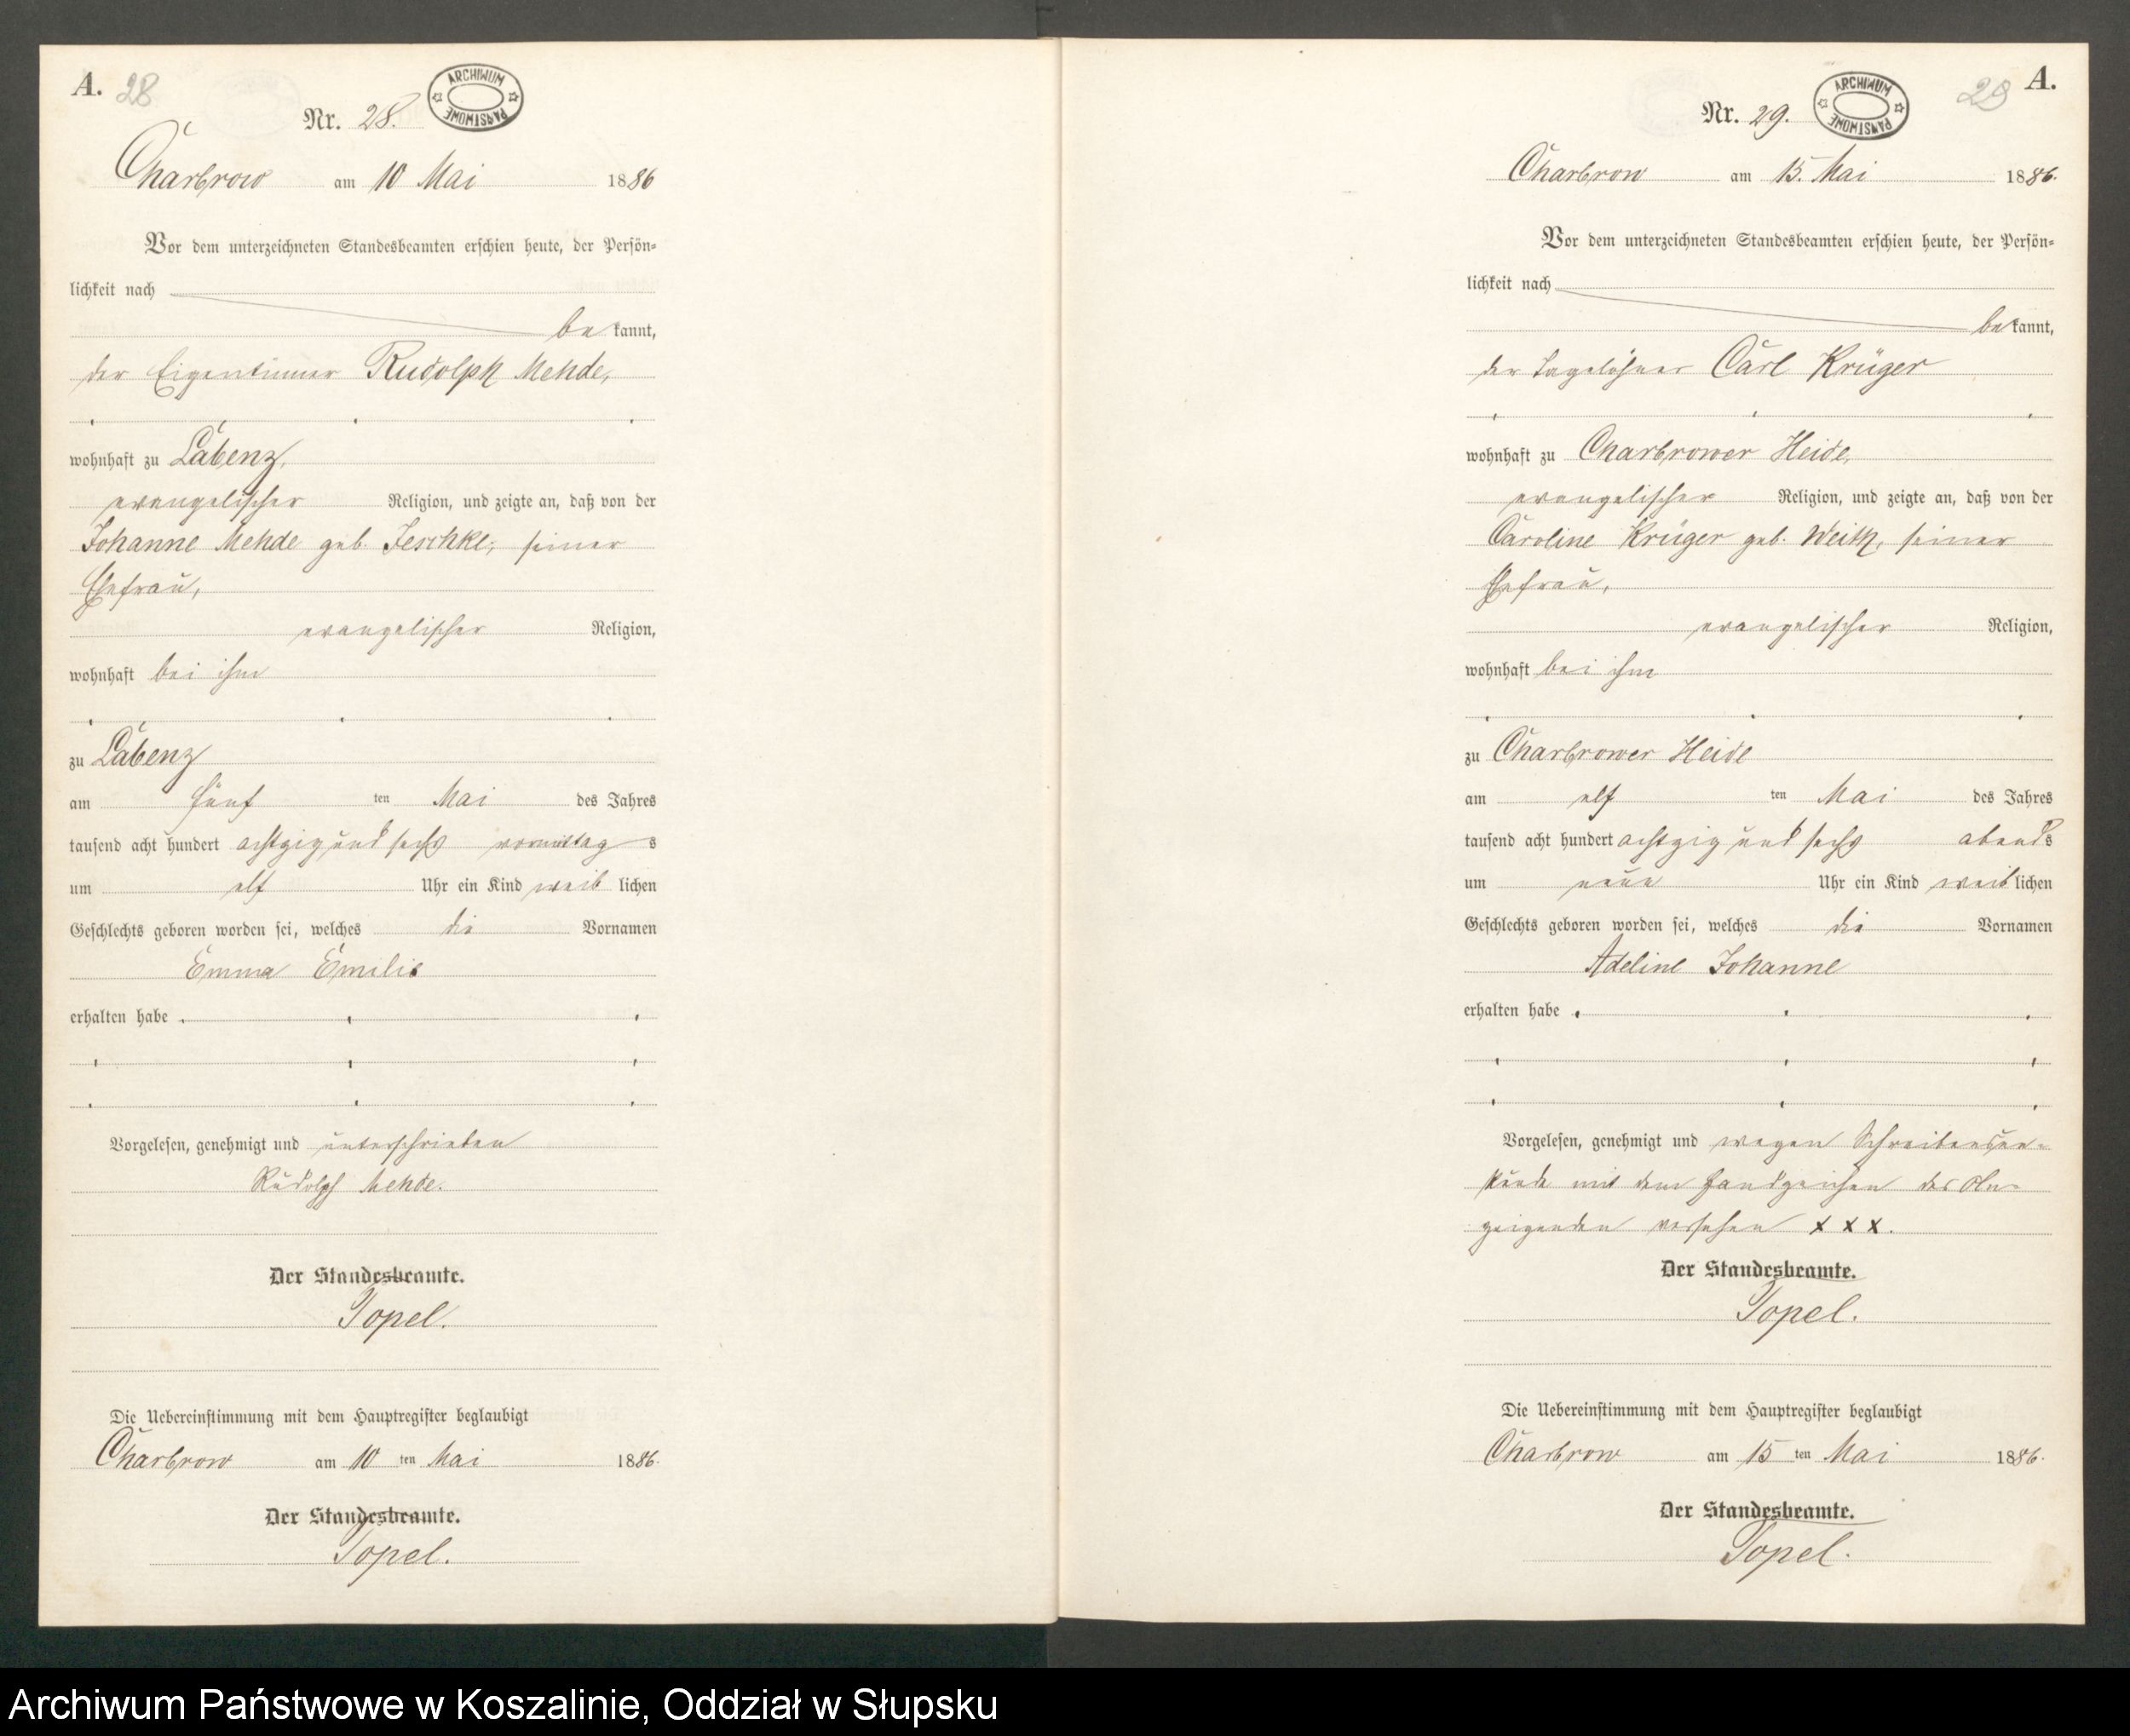 A. 28
Nr. 28.
ARCHIWUM PAŃSTWOWE
Charbrow am 10 Mai 1886
Vor dem unterzeichneten Standesbeamten erschien heute, der Persön=
lichkeit nach
be kannt,
der Eigentümer Rudolph Mehde,
wohnhaft zu Labenz,
evangelischer Religion, und zeigte an, daß von der
Johanne Mehde geb. Jeschke, seiner
Ehefrau,
evangelischer Religion,
wohnhaft bei ihm
zu Labenz
am fünf ten Mai des Jahres
tausend acht hundert achtzig und sechs vormittag s
um elf Uhr ein Kind weib lichen
Geschlechts geboren worden sei, welches die Vornamen
Emma Emilie
erhalten habe
Vorgelesen, genehmigt und unterschrieben
Rudolph Mehde.
Der Standesbeamte.
Topel.
Die Uebereinstimmung mit dem Hauptregister beglaubigt
Charbrow am 10 ten Mai 1886.
Der Standesbeamte.
Topel.
29 A.
Nr. 29.
ARCHIWUM PAŃSTWOWE
Charbrow am 15. Mai 1886.
Vor dem unterzeichneten Standesbeamten erschien heute, der Persön=
lichkeit nach
be kannt,
der Tagelöhner Carl Krüger
wohnhaft zu Charbrower Heide,
evangelischer Religion, und zeigte an, daß von der
Caroline Krüger geb. Weith, seiner
Ehefrau,
evangelischer Religion,
wohnhaft bei ihm
zu Charbrower Heide
am elf ten Mai des Jahres
tausend acht hundert achtzig und sechs abends
um neun Uhr ein Kind weib lichen
Geschlechts geboren worden sei, welches die Vornamen
Adeline Johanne
erhalten habe
Vorgelesen, genehmigt und wegen Schreibensun=
kunde mit dem Handzeichen des An=
zeigenden versehen x x x.
Der Standesbeamte.
Topel.
Die Uebereinstimmung mit dem Hauptregister beglaubigt
Charbrow am 15 ten Mai 1886.
Der Standesbeamte.
Topel.
Archiwum Państwowe w Koszalinie, Oddział w Słupsku